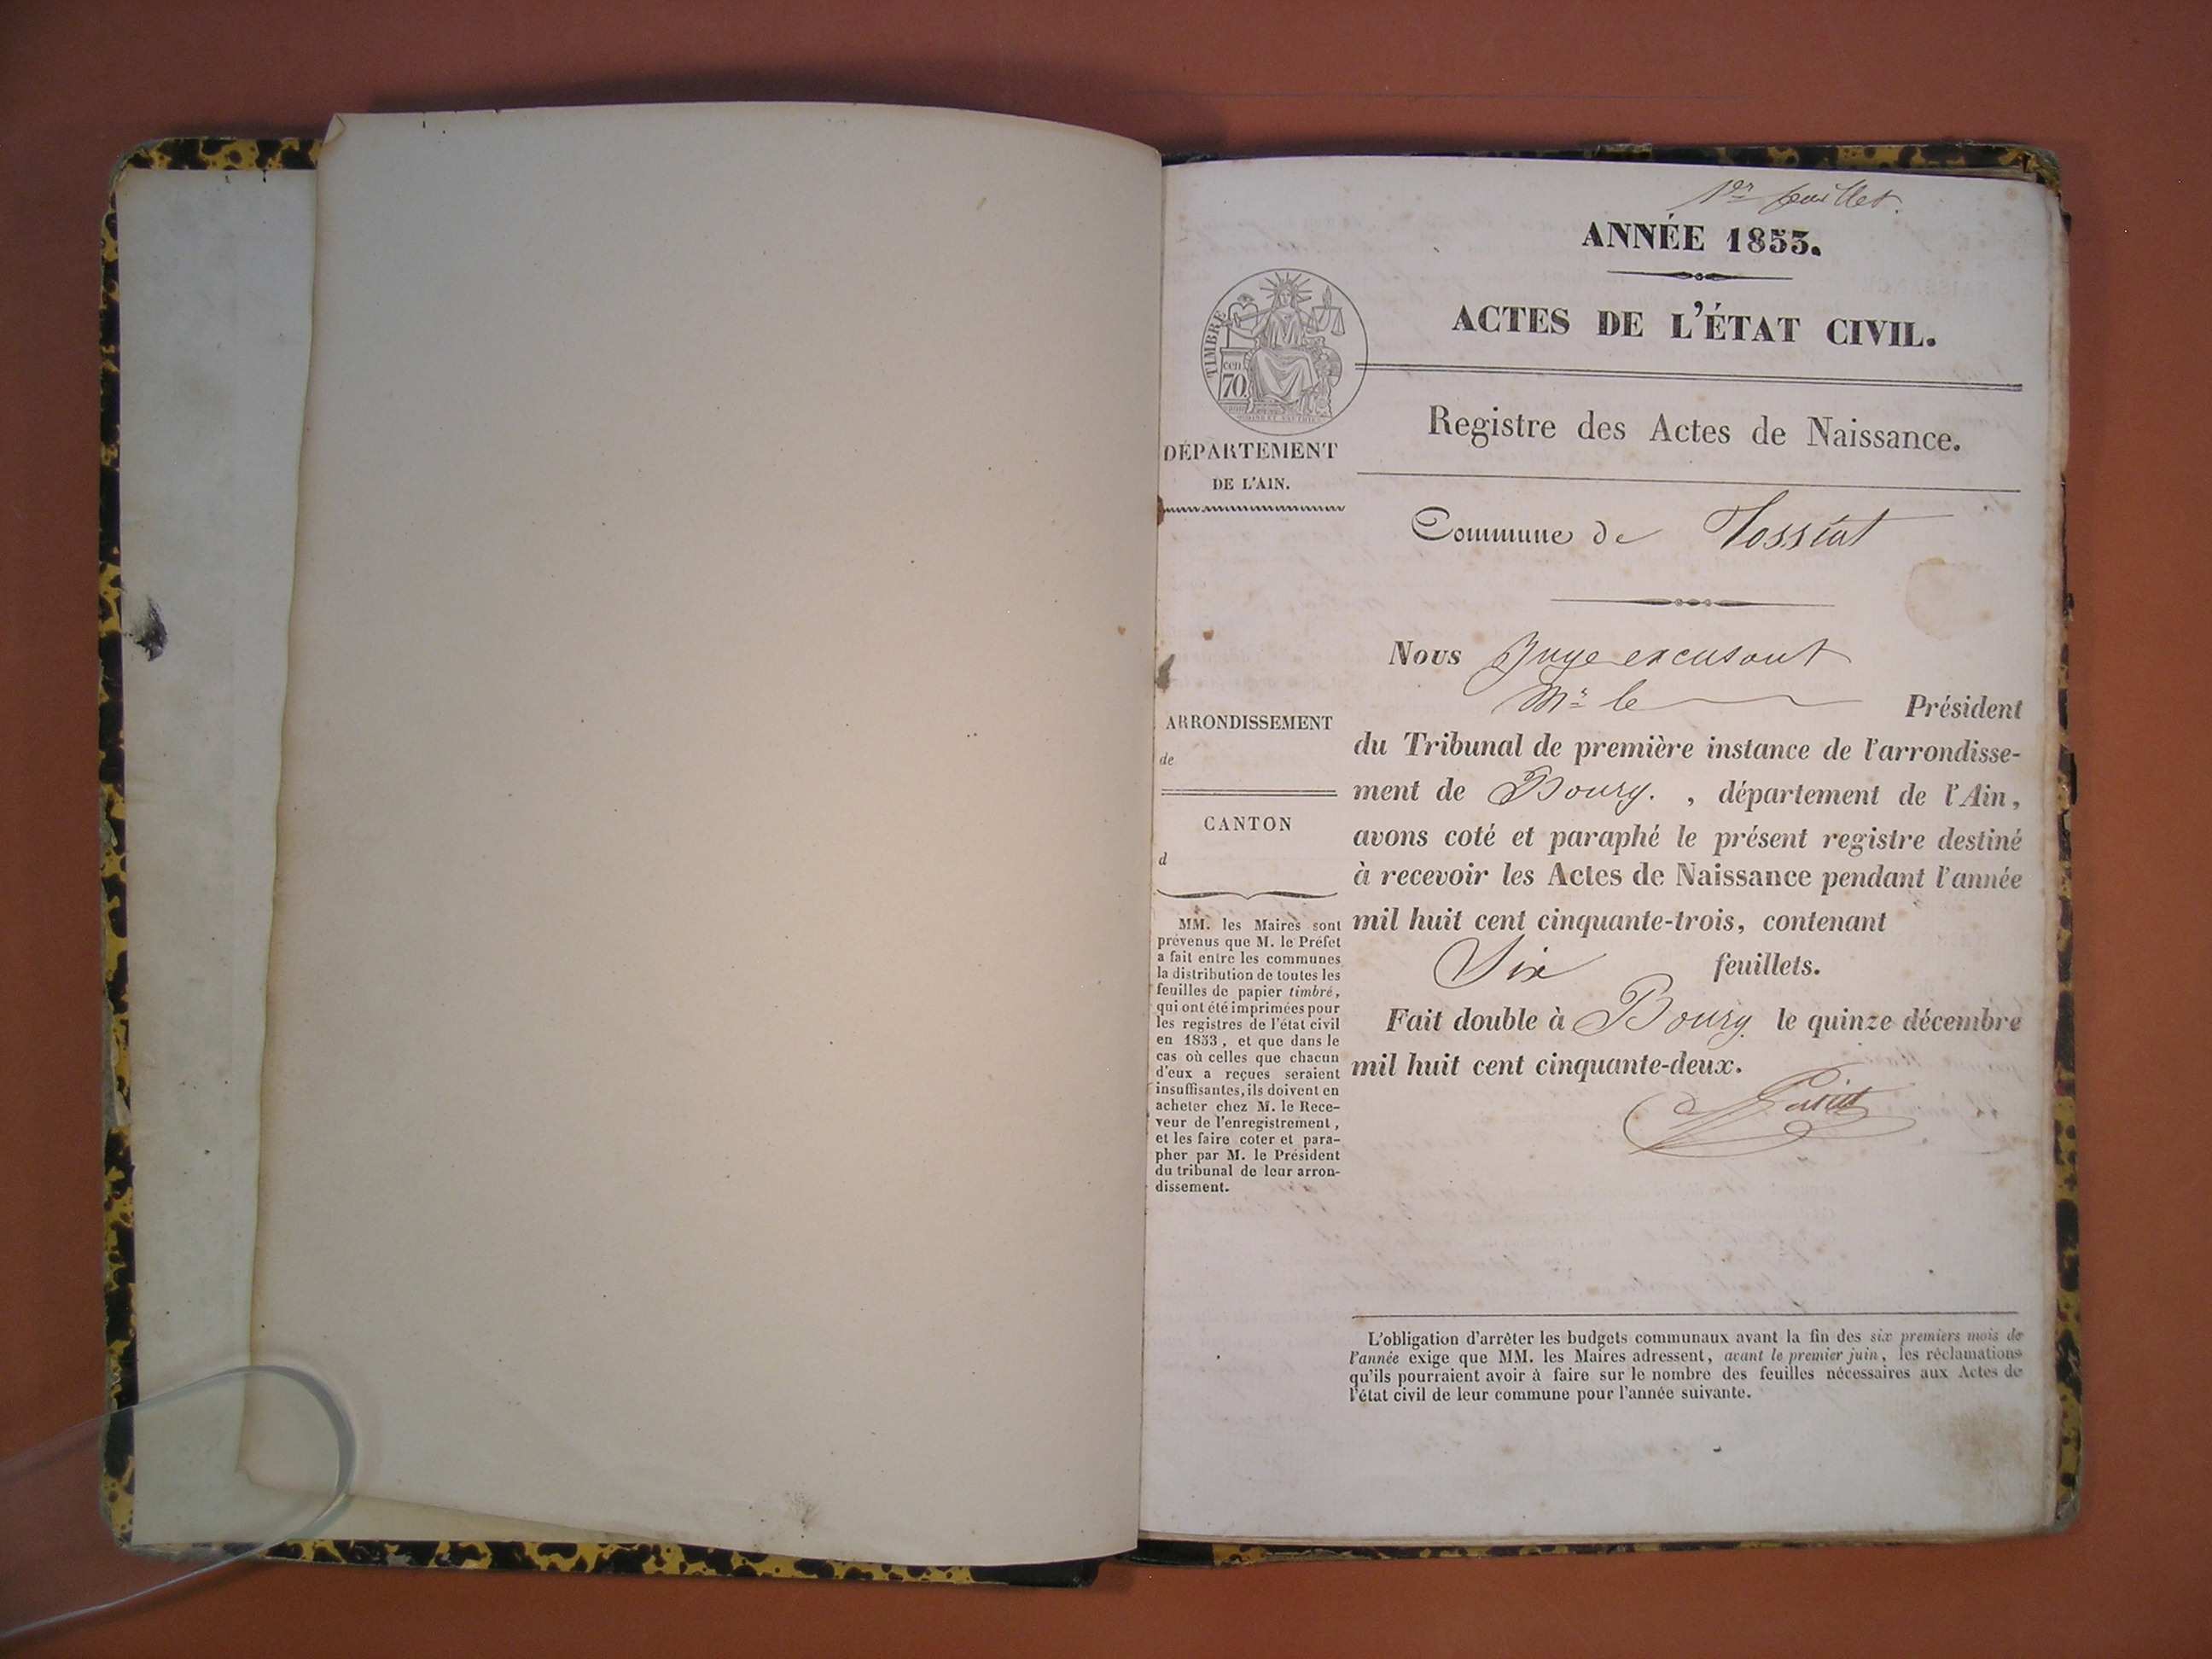 1er feuillet.
ANNÉE 1853.
ACTES DE L'ÉTAT CIVIL.
TIMBRE
cen
70
DÉPARTEMENT
DE L'AIN.
Registre des Actes de Naissance.
Commune de Tossiat
Nous Juge excusant
Mr le Président
du Tribunal de première instance de l'arrondisse-
ment de Bourg. , département de l'Ain,
avons coté et paraphé le présent registre destiné
à recevoir les Actes de Naissance pendant l'année
mil huit cent cinquante-trois, contenant
Six feuillets.
Fait double à Bourg le quinze décembre
mil huit cent cinquante-deux.
ARRONDISSEMENT
de
CANTON
d
MM. les Maires sont
prévenus que M. le Préfet
a fait entre les communes
la distribution de toutes les
feuilles de papier timbré,
qui ont été imprimées pour
les registres de l'état civil
en 1853, et que dans le
cas où celles que chacun
d'eux a reçues seraient
insuffisantes, ils doivent en
acheter chez M. le Rece-
veur de l'enregistrement,
et les faire coter et para-
pher par M. le Président
du tribunal de leur arron-
dissement.
L'obligation d'arrêter les budgets communaux avant la fin des six premiers mois de
l'année exige que MM. les Maires adressent, avant le premier juin, les réclamations
qu'ils pourraient avoir à faire sur le nombre des feuilles nécessaires aux Actes de
l'état civil de leur commune pour l'année suivante.